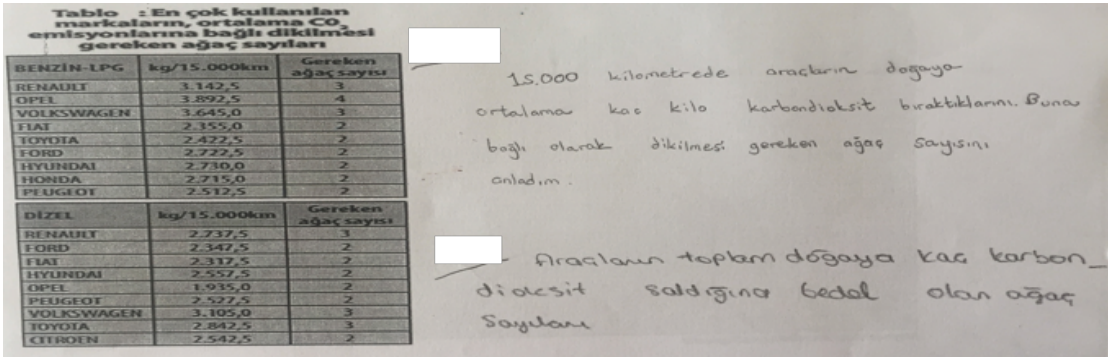 Tablo : En çok kullanılan
markaların, ortalama CO2
emisyonlarına bağlı dikilmesi
gereken ağaç sayıları
BENZİN-LPG kg/15.000km Gereken ağaç sayısı
RENAULT 3.142,5 3
OPEL 3.892,5 4
VOLKSWAGEN 3.645,0 3
FIAT 2.355,0 2
TOYOTA 2.422,5 2
FORD 2.722,5 2
HYUNDAI 2.730,0 2
HONDA 2.715,0 2
PEUGEOT 2.512,5 2
DİZEL kg/15.000km Gereken ağaç sayısı
RENAULT 2.737,5 3
FORD 2.347,5 2
FIAT 2.317,5 2
HYUNDAI 2.557,5 2
OPEL 1.935,0 2
PEUGEOT 2.527,5 2
VOLKSWAGEN 3.105,0 3
TOYOTA 2.842,5 3
CITROEN 2.542,5 2
15.000 kilometrede araçların doğaya
ortalama kaç kilo karbondioksit bıraktıklarını. Buna
bağlı olarak dikilmesi gereken ağaç sayısını
anladım.
Araçların toplam doğaya kaç karbon_
dioksit saldığına bedel olan ağaç
Sayıları